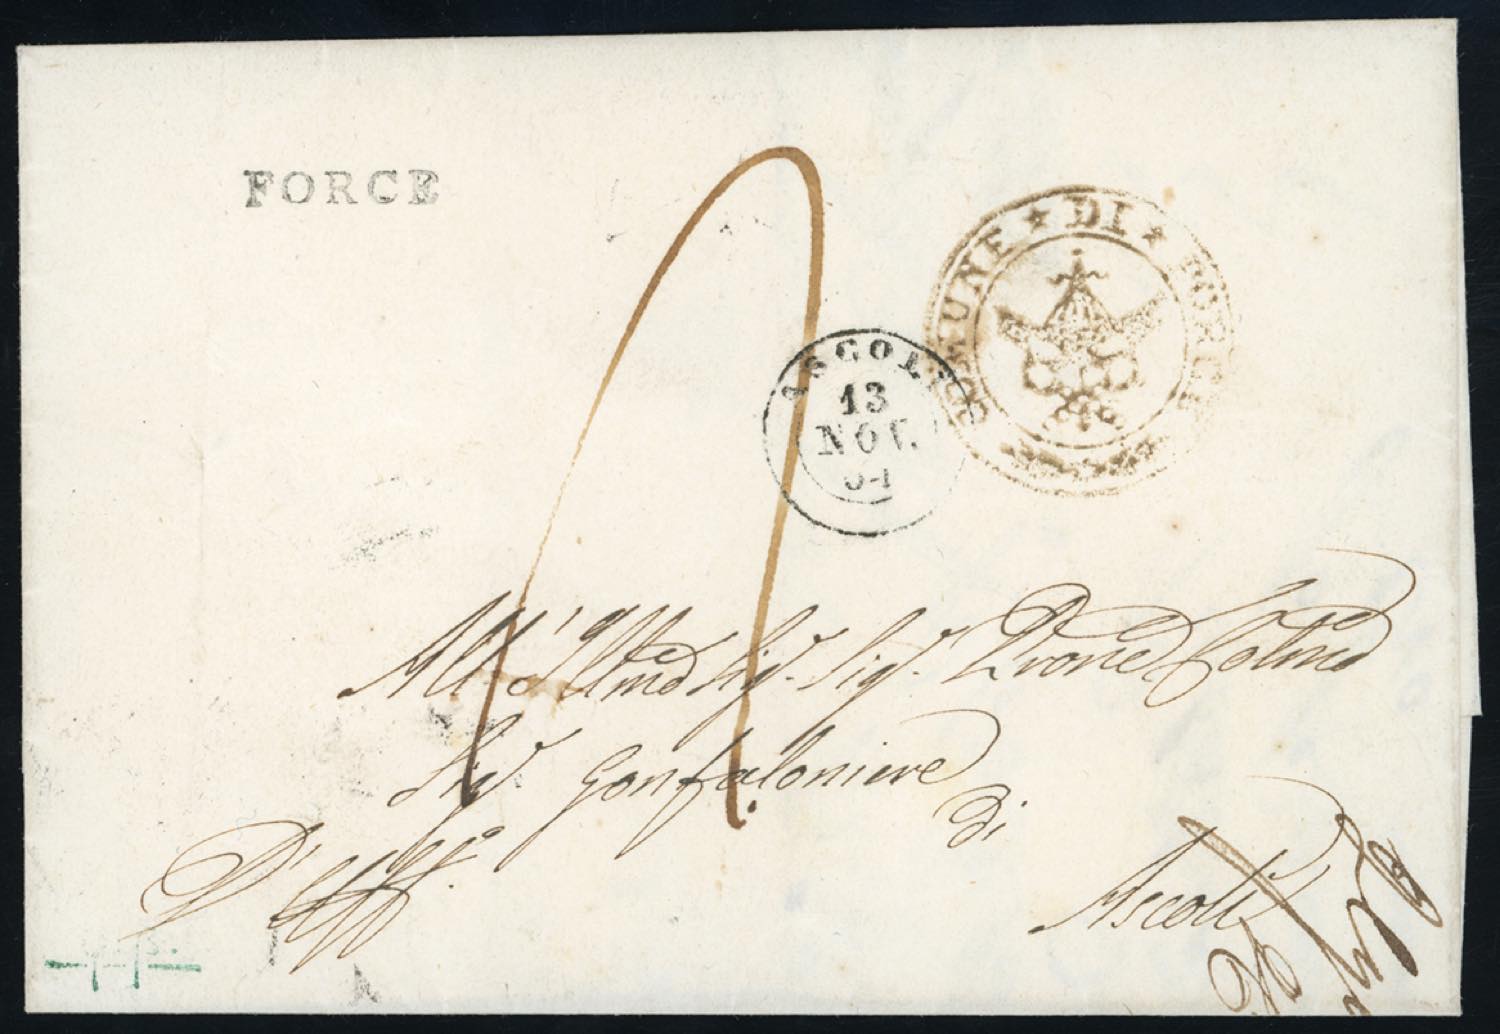 FORCE
COMUNE ★ DI ★ FORCE
ASCOLI
13
NOV.
54
All' Illmo Sig. Sig. Prone Colmo
Sig. Gonfaloniere
di
Ascoli
D'Uff.°